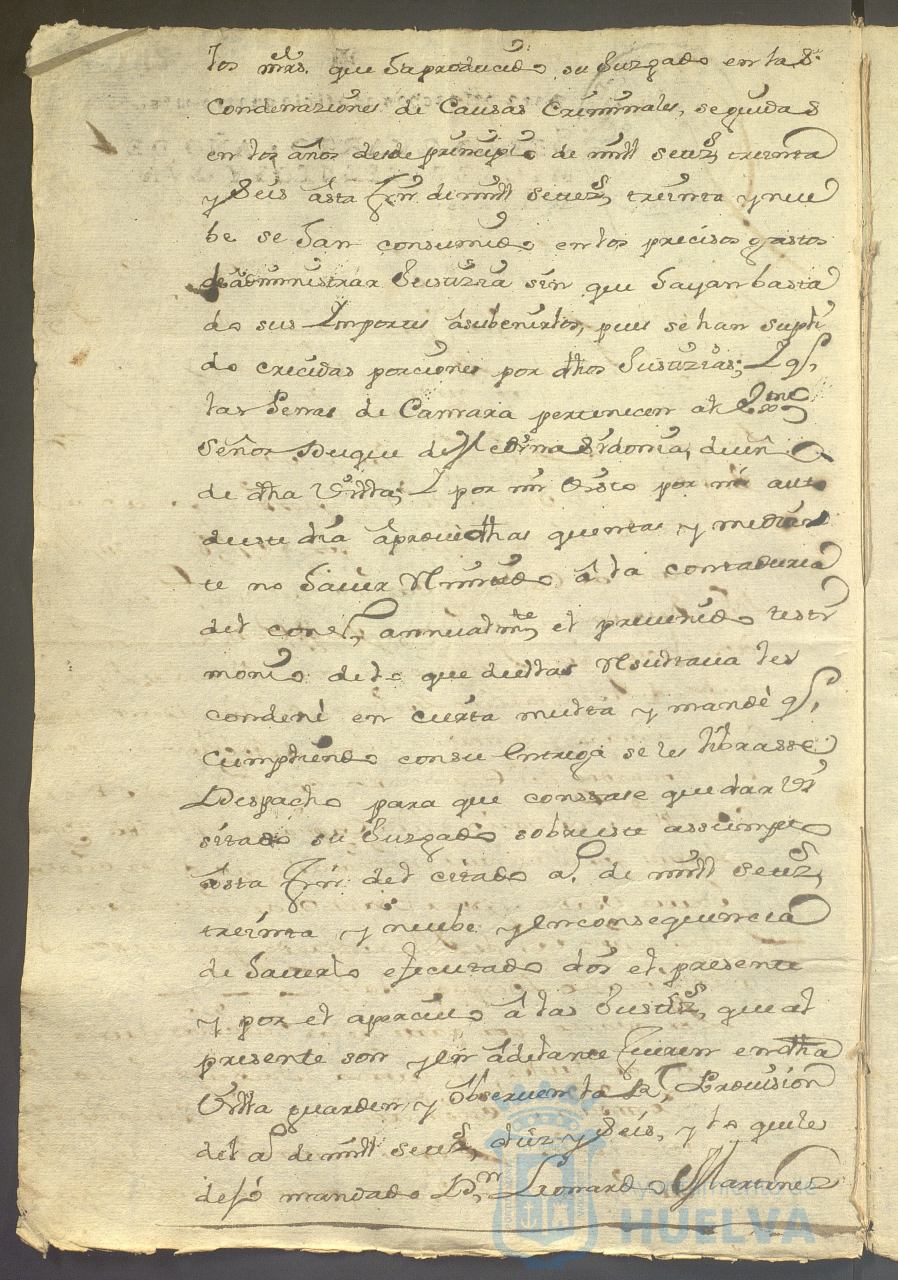 los mrs. que Ha producido su Juzgado en las
Condenaziones de Causas Criminales, seguidas
en los años desde principio de mill setezs. treinta
y Seis asta fin de mill setezs. treinta y nue
be se han consumido en los precisos gastos
de administrar Justizia sin que hayan basta
do sus Importes a subenirlos, pues se han supli
do crecidas porciones por dhos Justizias; Y q.
las Penas de Camara pertenecen al Exmo.
Señor Duque de Medina Sidonia, dueño
de dha Villa; Y por mi Visto por mi auto
de este dia aprove dhas quentas y median
te no haver Remitido â la contaduria
del cons.º annualmte. el prevenido testi
monio de lo que de ellas Resultava les
condenè en cierta multa y mandè q.
cumpliendo con su entrega se les librasse
Despacho para que constase quedar Vi
sitado su Juzgado sobre este assumpto
asta fin del citado a.º de mill setezs.
treinta y nuebe y en consequencia
de haverlo executado doi el presente
y por el apercivo â las Justizs. que al
presente son y en adelante fueren en dha
Villa guarden y observen la Rl. Provision
del a.º de mill setezs. diez y seis, y lo que le
dejó mandado Dn. Leonardo Martinez
Ayuntamiento de
HUELVA